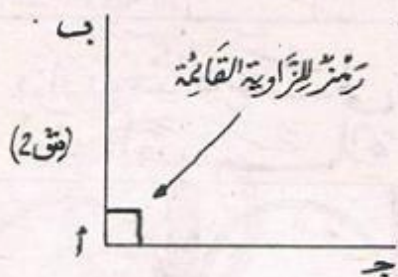 ب
رَمْزٌ لِلزَّاوِية القَائِمَة
(مق2)
أ
جـ